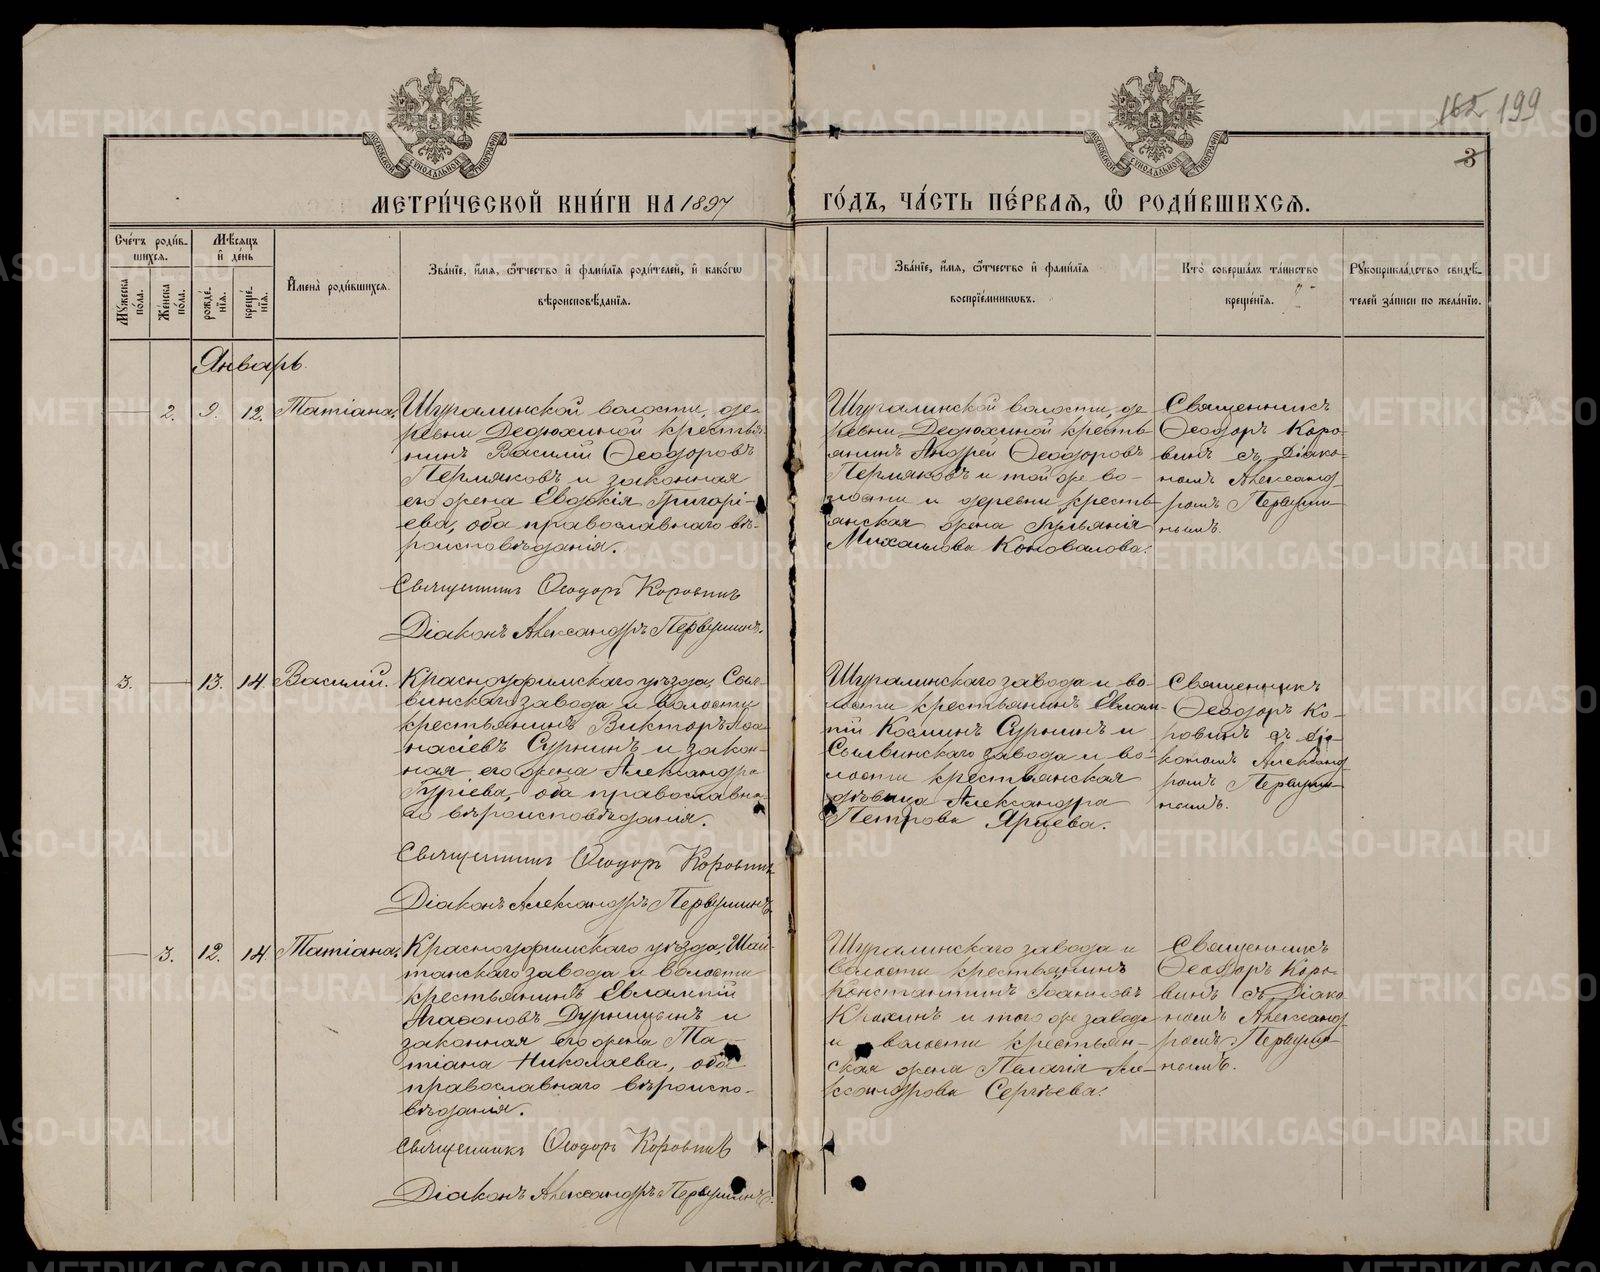 162 199
3
МОСКОВСКОЙ СѴНОДАЛЬНОЙ ТИПОГРАФІИ
МОСКОВСКОЙ СѴНОДАЛЬНОЙ ТИПОГРАФІИ
МЕТРИ́ЧЕСКОЙ КНИ́ГИ НА 1897
ГО́ДЪ, ЧА́СТЬ ПЕ́РВАЯ, Ѽ РОДИ́ВШИХСЯ.
Сче́тъ роди́в-
шихся.
Мꙋ́жеска по́ла.
Же́нска по́ла.
Мѣ́сяцъ
и҆ де́нь
рожде́-
нїя.
креще́-
нїя.
И҆мена̀ роди́вшихся.
Зва́нїе, и҆́мя, ѻ҆́тчество и҆ фами́лїя роди́телей, и҆ како́гѡ
вѣроисповѣ́данїя.
Зва́нїе, и҆́мя, ѻ҆́тчество и҆ фами́лїя
воспрїе́мникѡвъ.
Кто̀ соверша́лъ та́инство
креще́нїя.
Рꙋкоприкла́дство свидѣ́-
телей за́писи по жела́нїю.
Январь.
2. 9. 12. Татіана.
Шуралинской волости, де-
ревни Дедюхиной крестья-
нинъ Василій Ѳеодоровъ
Пермяковъ и законная
его жена Евдокія Григорі-
ева, оба православнаго вѣ-
роисповѣданія.
Священникъ Ѳеодоръ Коровинъ
Діаконъ Александръ Первушинъ.
Шуралинской волости, де
ревни Дедюхиной кресть
янинъ Андрей Ѳеодоровъ
Пермяковъ и той же во-
лости и деревни кресть
янская жена Іуліанія
Михаилова Коновалова.
Священникъ
Ѳеодоръ Коро-
винъ съ Діако-
номъ Александ-
ромъ Первуши-
нымъ.
3. 13. 14. Василій.
Красноуфимскаго уѣзда, Сыл-
винскаго завода и волости
крестьянинъ Викторъ Аѳа
насіевъ Сурнинъ и закон-
ная его жена Александра
Гуріева, оба православна-
го вѣроисповѣданія.
Священникъ Ѳеодоръ Коровинъ
Діаконъ Александръ Первушинъ
Шуралинскаго завода и во-
лости крестьянинъ Евлам-
пій Космин Сурнинъ и
Сылвинскаго завода и во-
лости крестьянская
дѣвица Александра
Петрова Ярцева.
Священникъ
Ѳеодоръ Ко-
ровинъ съ діа-
кономъ Александ-
ромъ Первуши-
нымъ.
3. 12. 14. Татіана.
Красноуфимскаго уѣзда, Шай-
танскаго завода и волости
крестьянинъ Евлампій
Агаѳоновъ Дурницынъ и
законная его жена Та-
тіана Николаева, оба
православнаго вѣроиспо-
вѣданія.
Священникъ Ѳеодоръ Коровинъ
Діаконъ Александръ Первушинъ.
Шуралинскаго завода и
волости крестьянинъ
Константинъ Іоанновъ
Клюхинъ и того же завода
и волости крестьян-
ская жена Пелагія Але-
ксандрова Сергѣева.
Священникъ
Ѳеодоръ Коро-
винъ съ Діако
номъ Александ-
ромъ Первуши-
нымъ.
METRIKI.GASO-URAL.RU